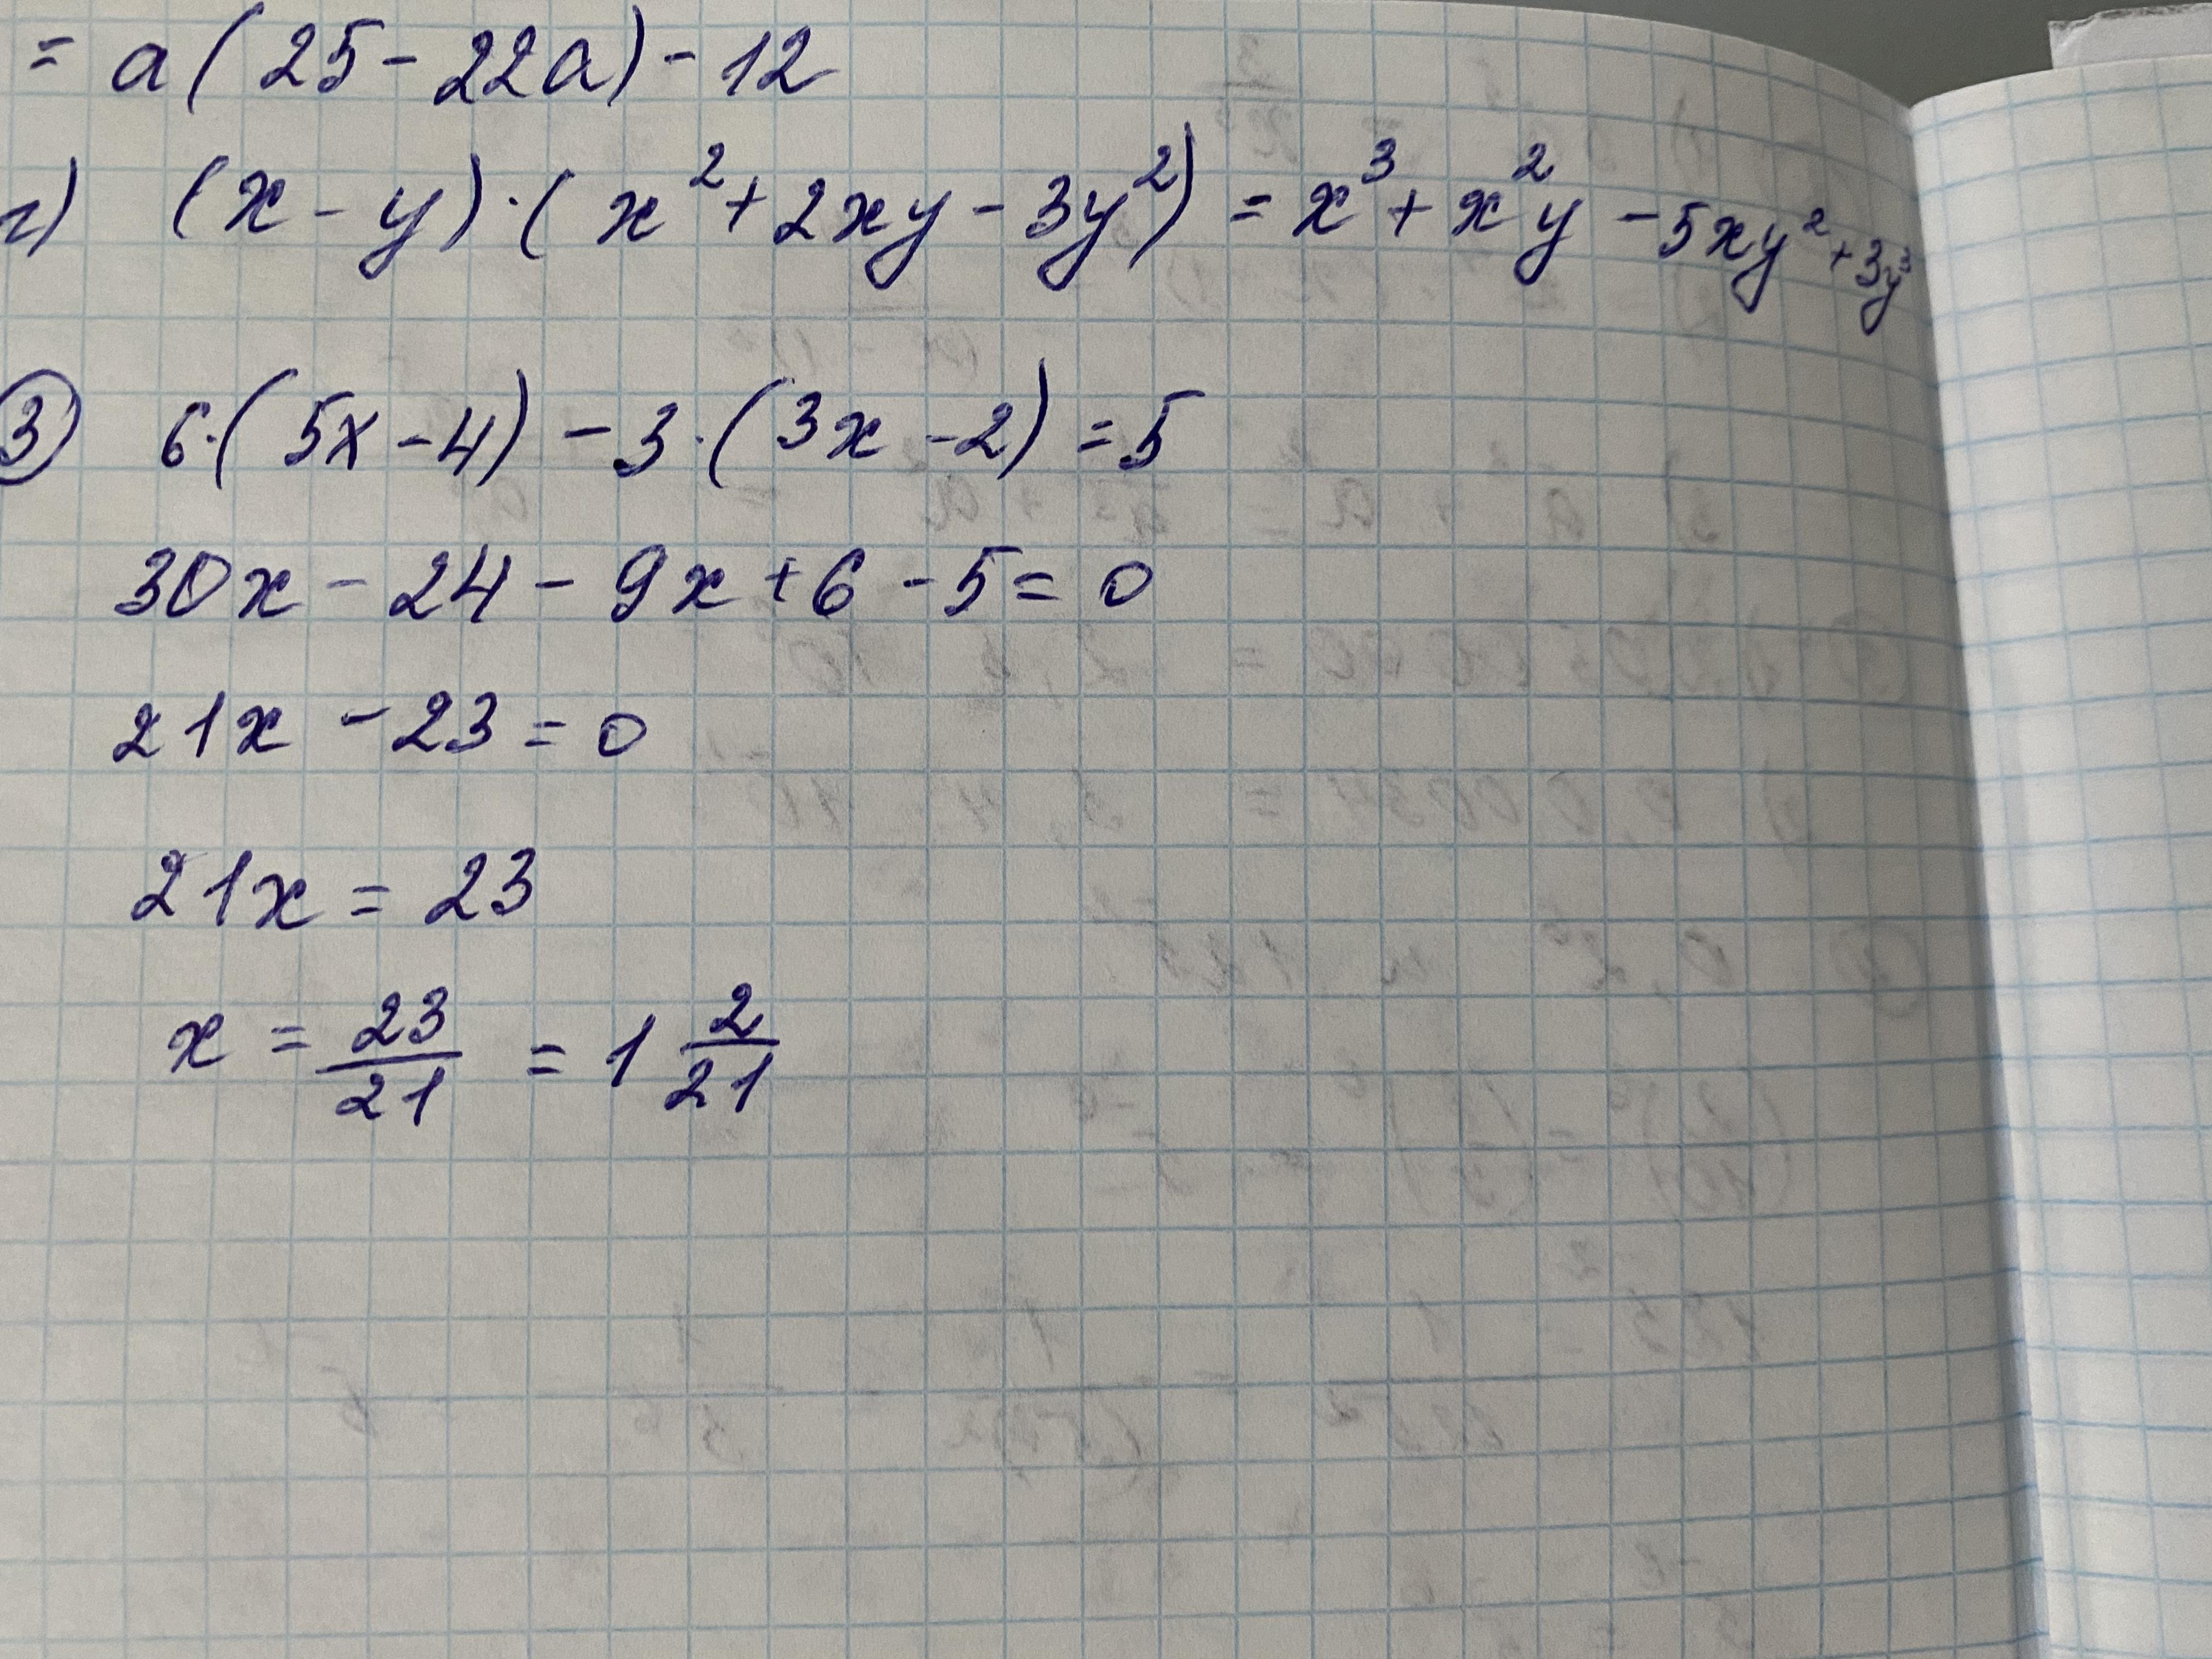 = a(25-22a)-12
г) (x-y)·(x²+2xy-3y²) = x³+x²y-5xy²+3y³
③ 6·(5x-4)-3·(3x-2)=5
30x-24-9x+6-5=0
21x-23=0
21x=23
x = 23/21 = 1 2/21